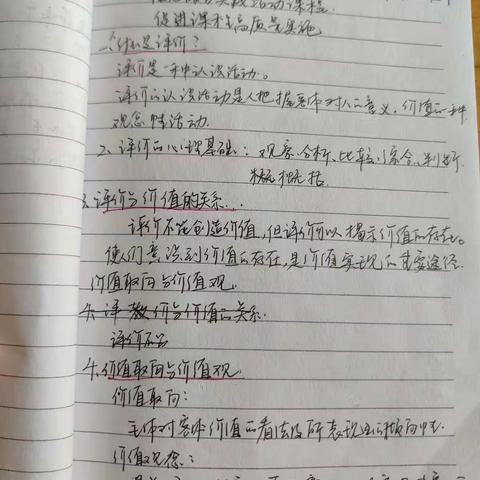 促进课程高质量实施
一、什么是评价?
评价是一种认识活动。
评价的认识活动是人把握客体对人的意义、价值的一种
观念性活动.
2、评价的心理基础:观察、分析、比较、综合、判断
概括
3、评价与价值的关系.
评价不能创造价值,但评价可以揭示价值的存在。
使人们意识到价值的存在,是价值实现的重要途径.
价值取向与价值观
4、评教价与价值的关系.
评价不岀
4、价值取向与价值观
价值取向:
主体对客体价值的看法及所表现出的倾向性.
价值观念: